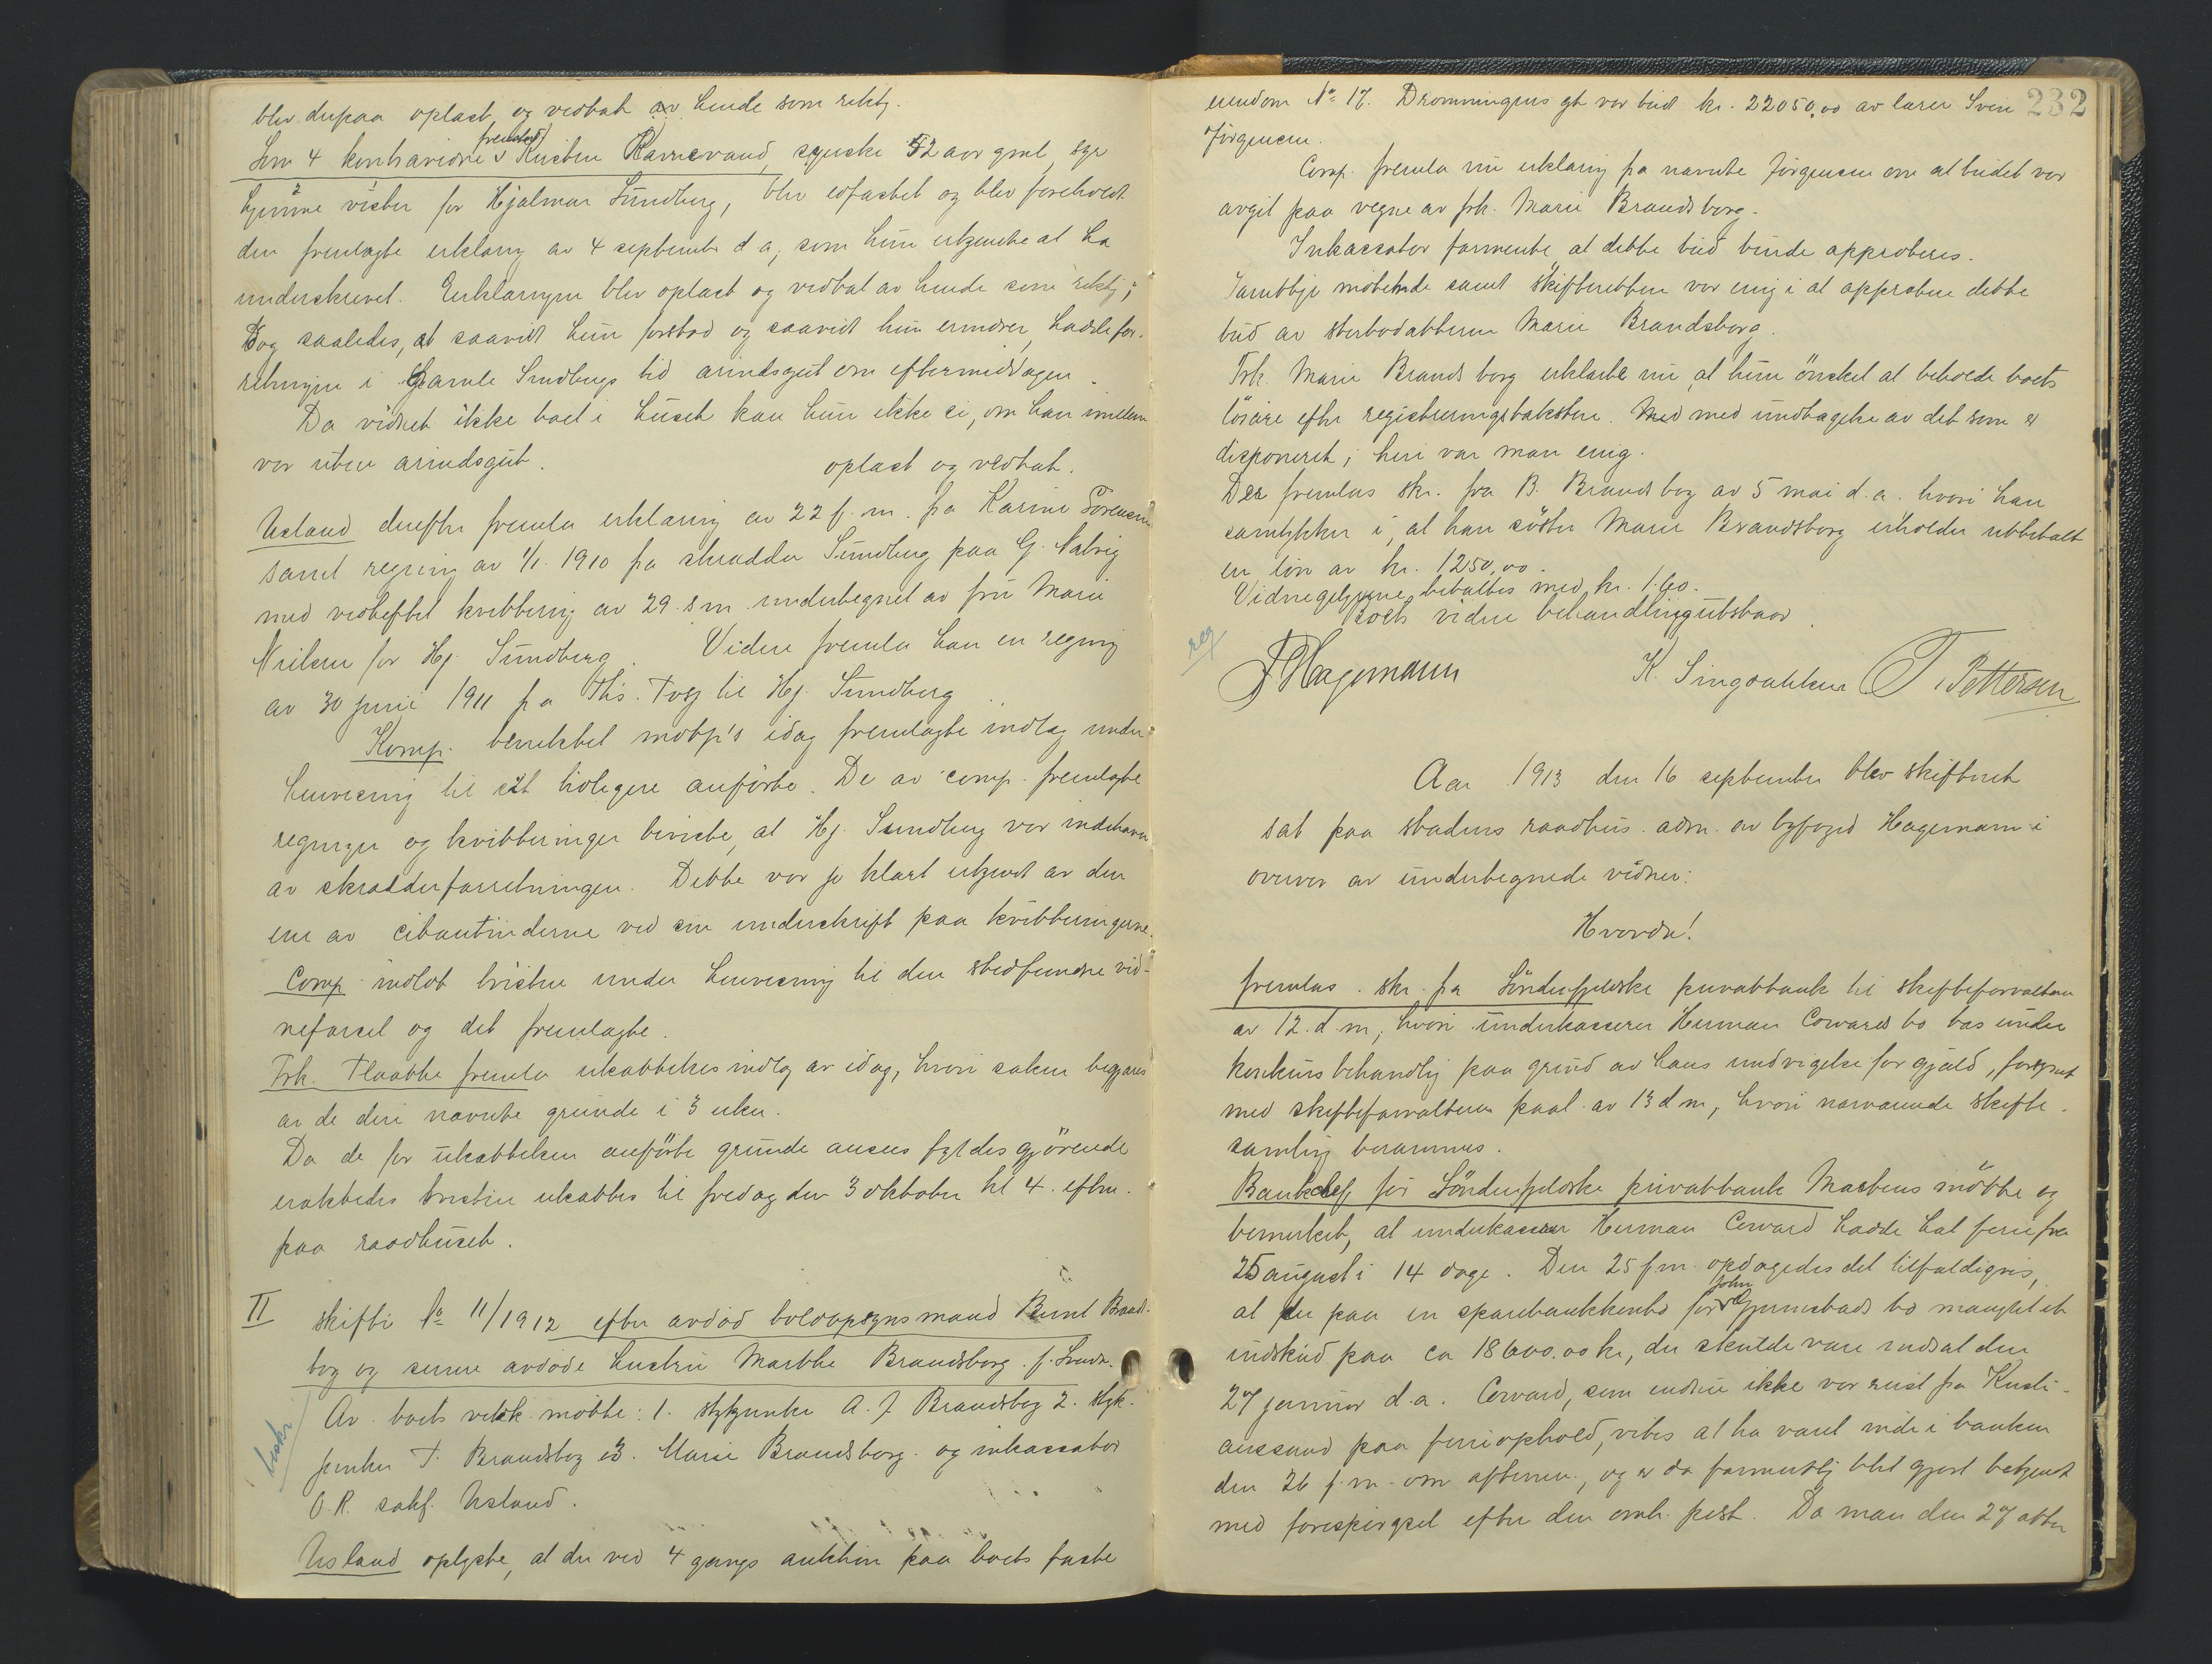 blev derpaa oplæst og vedtat av hende som riktig.
Som 4 kontravidne fremstod Kristine Ravnevand, syerske 52 aar gml, syr
hjemme vester for Hjalmar Sundberg, blev edfæstet og blev foreholdt
den fremlagte erklæring av 4 september d a, som hun erkjendte at ha
underskrevet. Erklæringen blev oplæst og vedtat av hende som riktig;
Dog saaledes, at saavidt hun forstod og saavidt hun erindrer, hadde for-
retningen i Gamle Sundbergs tid ærindsgut om eftermiddagen.
Da vidnet ikke boet i huset kan hun ikke si, om han imellem
var uten ærindsgut. oplæst og vedtat.
Usland derefter fremla erklæring av 22 f. m. fra Karine Sörensen
samt regning av 1/1. 1910 fra skrædder Sundberg paa G. Nalvig
med vedheftet kvittering av 29. s m. undertegnet av fru Marie
Nielsen for Hj. Sundberg. Videre fremla han en regning
av 30 juni 1911 fra Ths. Tvej til Hj. Sundberg
Komp. bemerket motp's idag fremlagte indlæg under
henvisning til sit tidligere anförte. De av comp. fremlagte
regninger og kvitteringer beviste, at Hj. Sundberg var indehaver
av skrædderforretningen. Dette var jo klart erkjendt av den
ene av citantinderne ved sin underskrift paa kvitteringerne.
Comp indlot tvisten under henvisning til den stedfundne vid-
neförsel og det fremlagte.
Frk. Flaatte fremla utsættelses indlæg av idag, hvori saken begjæres
av de deri nævnte grunde i 3 uker.
Da de for utsættelsen anförte grunde ansees fyldes gjörende
eragtedes tvisten utsættes til fredag den 3 oktober kl 4. efterm.
paa raadhuset.
II skifte No 11/1912 efter avdöd toldopsynsmand Bernt Brands-
borg og senere avdöde hustru Marthe Brandsborg. f. Svends.
Av boets vedk. mötte: 1. styrmand A. J Brandsborg 2. frk.
T. Brandsborg 3. Marie Brandsborg. og inkassator
O.R. sakf. Usland.
Usland oplyste, at der ved 4 gangs auktion paa boets faste
232
eiendom No 17. Dronningens gt var bud kr. 22050,00 av lærer Svein
Jörgensen.
Comp. fremla nu erklæring fra nævnte Jörgensen om at budet var
avgit paa vegne av frk. Marie Brandsborg.
Inkassator formente, at dette bud burde approberes.
Samtlige mötende samt skifteretten var enig i at approbere dette
bud av sterbodatteren Marie Brandsborg.
Frk. Marie Brandsborg erklærte nu, at hun önsket at beholde boets
lösöre efter registreringstaksten. Med med undtagelse av det som er
disponeret; heri var man enig.
Der fremlas skr. fra B. Brandsborg av 5 mai d. a. hvori han
samtykker i, at han söster Marie Brandsborg erholder utbetalt
en lön av kr. 1250,00.
Vidnegebyrene betaltes med kr. 1.60.
Boets videre behandling utstaar.
reg
Hagemann K. Singdahlsen T. Pettersen
Aar 1913 den 16 september blev skifteret
sat paa stadens raadhus. adm. av byfoged Hagemann i
overvær av undertegnede vidner:
Hvorda!
fremlas. skr. fra Söndenfjeldske privatbank til skifteforvalteren
av 12. d. m, hvori underkasserer Herman Cowards bo tas under
konkursbehandling paa grund av hans undvigelse for gjæld, forsynet
med skifteforvalterens paat. av 13 d m, hvori nærværende skifte-
samling berammes.
Bankchef for Söndenfjeldske privatbank Martens mötte og
bemerket, at underkasserer Herman Coward hadde hat ferie fra
25 august i 14 dage. Den 25 f. m. opdagedes det tilfældigvis,
at der paa en sparebankkonto for John Gjermestads bo manglet et
indskud paa ca 18600.00 kr, der skulde være indsat den
27 januar d. a. Coward, som endnu ikke var reist fra Kristi-
anssand paa ferieophold, vites at ha været inde i banken
den 26 f. m. om aftenen, og er da formentlig blit gjort bekjendt
med forespörgsel efter den omh. post. Da man den 27 atter
beskr